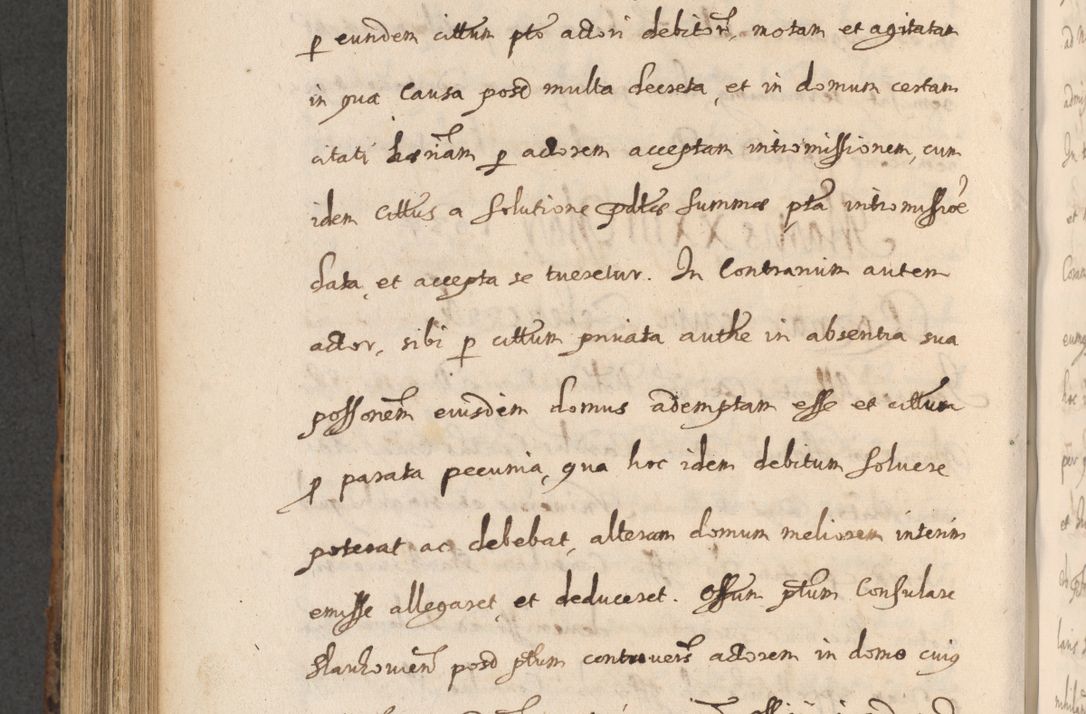 p eundem cittum pto actori debitor, motam et agitatam
in qua causa post multa decreta, et in domum certam
citati p actorem acceptam intromissionem, cum
idem cittus a solutione pdtæ summæ pta intromissioe
data, et accepta se tueretur. In contrarium autem
actor, sibi p cittum privata authe in absentia sua
possonem eiusdem domus ademptam esse et cittum
p parata pecunia, qua hoc idem debitum solvere
poterat ac debebat, alteram domum meliorem interim
emisse allegaret et deduceret. Offum ptum Consulare
post ptum controvers actorem in domo cuius